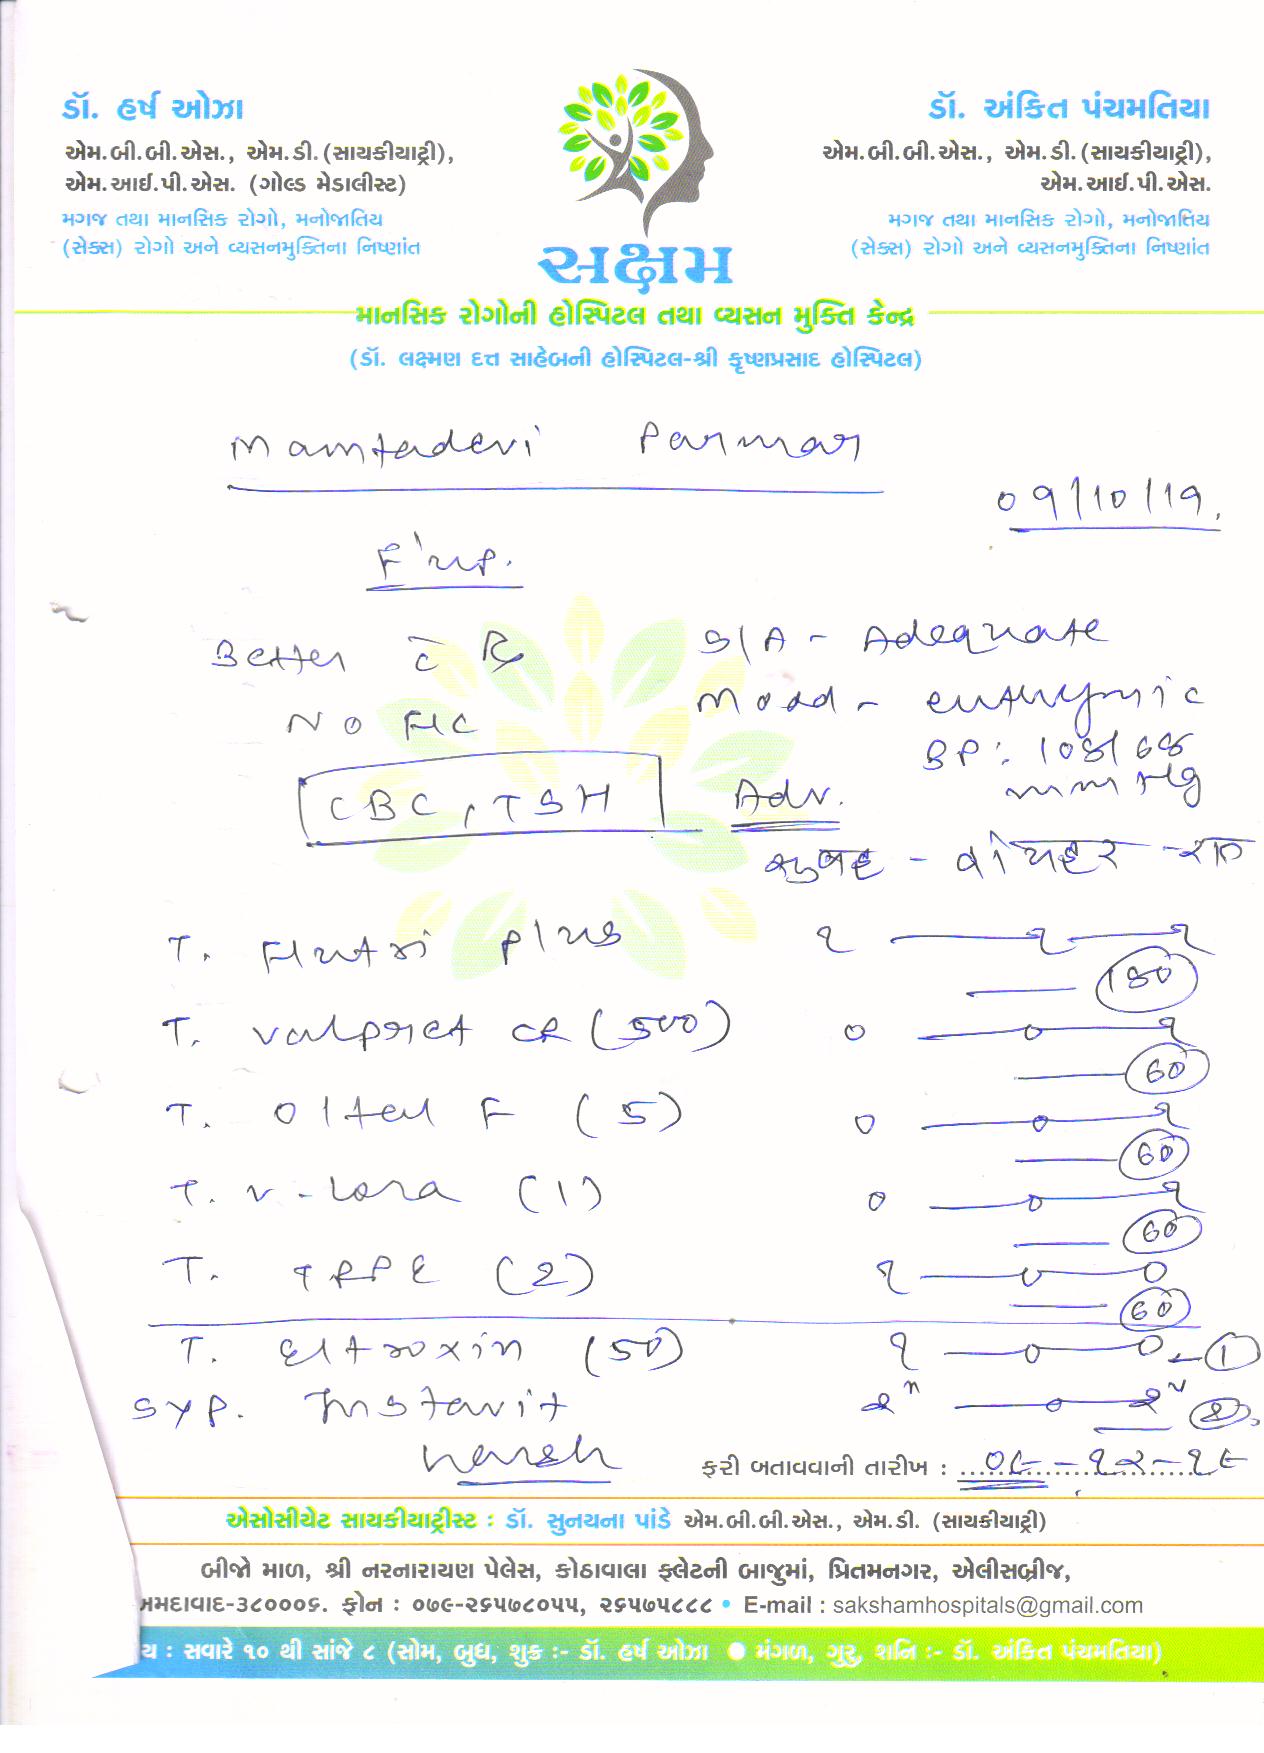 ડૉ. હર્ષ ઓઝા
એમ.બી.બી.એસ., એમ.ડી.(સાયકીયાટ્રી),
એમ.આઈ.પી.એસ. (ગોલ્ડ મેડાલીસ્ટ)
મગજ તથા માનસિક રોગો, મનોજાતિય
(સેક્સ) રોગો અને વ્યસનમુક્તિના નિષ્ણાંત
ડૉ. અંકિત પંચમતિયા
એમ.બી.બી.એસ., એમ.ડી.(સાયકીયાટ્રી),
એમ.આઈ.પી.એસ.
મગજ તથા માનસિક રોગો, મનોજાતિય
(સેક્સ) રોગો અને વ્યસનમુક્તિના નિષ્ણાંત
સક્ષમ
માનસિક રોગોની હોસ્પિટલ તથા વ્યસન મુક્તિ કેન્દ્ર
(ડૉ. લક્ષ્મણ દત્ત સાહેબની હોસ્પિટલ-શ્રી કૃષ્ણપ્રસાદ હોસ્પિટલ)
Mamtadevi Parmar
09/10/19.
F'up.
Better c̄ Rx
S/A - Adequate
No F/C
Mood - euthymic
BP: 108/68
mmHg
CBC, TSH
Adv.
सुबह - दोपहर - रात
T. Flutri plus १ — १ — १
180
T. Valpret CR (500) ० — ० — १
60
T. Olteul F (5) ० — ० — १
60
T. V-Lora (1) ० — ० — १
60
T. (2) १ — ० — ०
60
T. Eltroxin (50) १ — ० — ० - 1
Syp. Instavit २" — ० — २" 2
Harsh
ફરી બતાવવાની તારીખ : ०८ - १२ - १૯
એસોસીયેટ સાયકીયાટ્રીસ્ટ : ડૉ. સુનયના પાંડે એમ.બી.બી.એસ., એમ.ડી. (સાયકીયાટ્રી)
બીજો માળ, શ્રી નરનારાયણ પેલેસ, કોઠાવાલા ફ્લેટની બાજુમાં, પ્રિતમનગર, એલીસબ્રીજ,
અમદાવાદ-૩૮૦૦૦૬. ફોન : ૦૭૯-૨૬૫૭૮૦૫૫, ૨૬૫૭૫૮૮૮ • E-mail : sakshamhospitals@gmail.com
ય : સવારે ૧૦ થી સાંજે ૮ (સોમ, બુધ, શુક્ર :- ડૉ. હર્ષ ઓઝા ● મંગળ, ગુરુ, શનિ :- ડૉ. અંકિત પંચમતિયા)